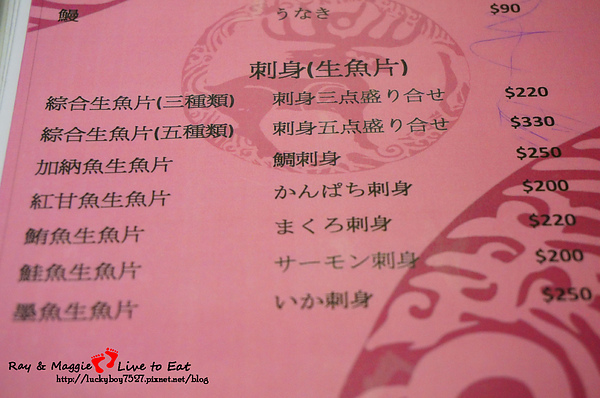 鰻 うなき $90
刺身(生魚片)
綜合生魚片(三種類) 刺身三点盛り合せ $220
綜合生魚片(五種類) 刺身五点盛り合せ $330
加納魚生魚片 鯛刺身 $250
紅甘魚生魚片 かんぱち刺身 $200
鮪魚生魚片 まくろ刺身 $220
鮭魚生魚片 サーモン刺身 $200
墨魚生魚片 いか刺身 $250
Ray & Maggie Live to Eat
http://luckyboy7527.pixnet.net/blog